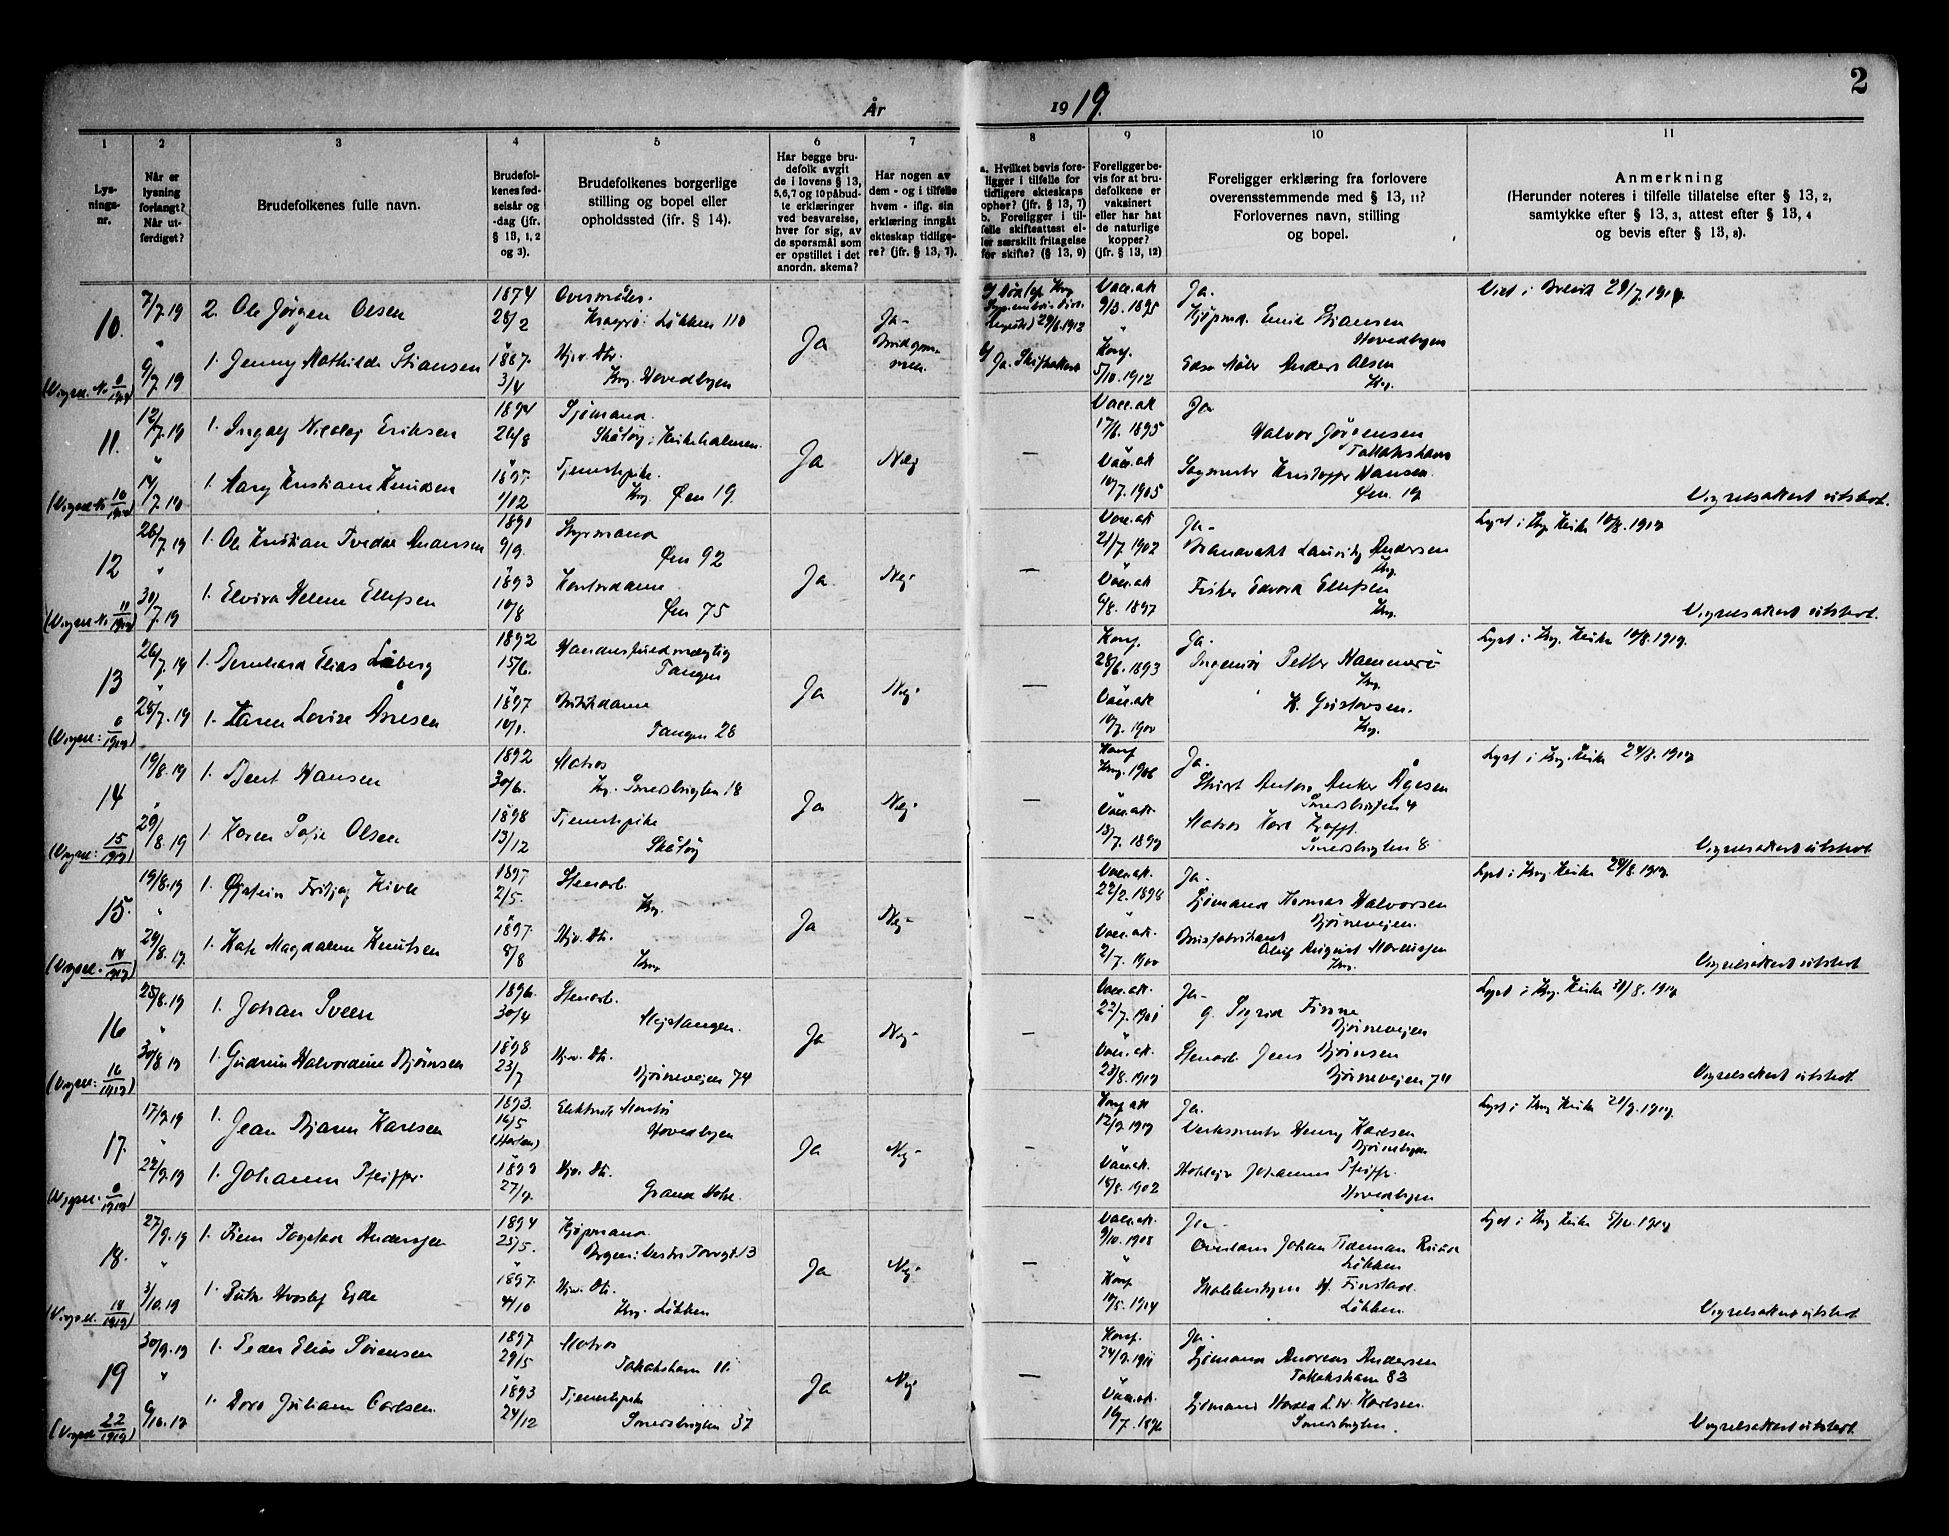 2
År
1919.
1
2
3
4
5
6
7
8
9
10
11
Lys-
nings-
nr.
Når er
lysning
forlangt?
Når ut-
ferdiget?
Brudefolkenes fulle navn.
Brudefol-
kenes fød-
selsår og
-dag (jfr.
§ 13, 1, 2
og 3).
Brudefolkenes borgerlige
stilling og bopel eller
opholdssted (ifr. § 14).
Har begge bru-
defolk avgit
de i lovens § 13,
5,6,7 og 10 påbud-
te erklæringer
ved besvarelse,
hver for sig, av
de spørsmål som
er opstillet i det
anordn. skema?
Har nogen av
dem - og i tilfelle
hvem - iflg. sin
erklæring inngåt
ekteskap tidlige-
re? (jfr. § 13, 7).
a. Hvilket bevis fore-
ligger i tilfelle for
tidligere ekteskaps
ophør? (jfr. § 13, 7)
b. Foreligger i til-
felle skifteattest el-
ler særskilt fritagelse
for skifte? (§ 13, 9)
Foreligger be-
vis for at bru-
defolkene er
vaksinert
eller har hat
de naturlige
kopper?
(jfr. § 13, 12)
Foreligger erklæring fra forlovere
overensstemmende med § 13, 11?
Forlovernes navn, stilling
og bopel.
Anmerkning
(Herunder noteres i tilfelle tillatelse efter § 13, 2,
samtykke efter § 13, 3, attest efter § 13, 4
og bevis efter § 13, 8).
10.
7/7.19
2. Ole Jørgen Olsen
1874
28/2
Kragrø: Løkken 110
Ja
Ja-
29/6.1912
Vacc.at.
9/3. 1895
Ja.
Kjøpmd. Emil Stiansen
Hovedbygen
Viet i Brevik 29/7.1919.
9/7 19
1. Jenny Mathilde Stiansen
1887.
3/4
Hjv. Dtr.
Krg. Hovedbygen
b/ Ja. Skifteattest
Konf.
5/10.1912
Anders Olsen
Krg.
11.
12/7.19
1. Ingolf Nicolaj Eriksen
1894
26/8
Sjømand.
Skåtøy: Kirkeholmen.
Ja
Nej
—
Vacc.at
17/6. 1895
Ja
Halvor Jørgensen
Tallakshavn
14/7.19
Knudsen
1897.
1/12
Tjenestepike.
Krg. Øen 19
Vacc.at
10/7.1905
Kristoffer Hansen.
Øen 19
Vigselsattest utstedt.
12
26/7.19
1. Ole Kristian Tvedte Andersen
1890
9/9.
Styrmand
Øen 92
Ja
Nej-
—
Vacc.at
21/7 1902
Ja-
Brandvakt Lauritz Andersen
Krg.
Lyst i Krg Kirke 10/8.1919
30/7.19
1. Elvira Helene Ellefsen
1893
10/8
Kontordame
Øen 75
Vacc.at
6/8. 1897
Fisker Edvard Ellefsen
Krg.
Vigselsattest utstedt.
13
26/7.19
1. Bernhard Elias Løberg
1892
15/6.
Handelsfuldmægtig
Tangen
Ja
Nej-
—
Konf.
28/6.1893
Ja.
Petter Hammerø
Krg.
Lyst i Krg. Kirke 10/8.1919.
28/7.19
1. Karen Lovise Åresen
1897
10/1.
Butikkdame
Tangen 28
Vacc.at
10/7. 1900
K. Gustavsen.
Krg.
14
19/8.19
1. Bent Hansen
1892
30/6.
Matros
Krg. Smedsbugten 18
Ja
Nej-
—
Konf
Krg. 1906
Ja.
Anker Ågesen
Smedsbugten 4
Lyst i Krg. Kirke 24/8.1919
29/8.19
1. Karen Sofie Olsen
1898
13/12
Tjenestepike
Skåtøy
Vacc.at.
13/7. 1899
Matros Karl Krafft.
Smedsbugten 8
Vigselsattest utstedt
15.
19/8.19
1. Øistein Fritjog Kivle
1897
2/5.
Stenarb.
Krg.
Ja
Nej-
—
Vacc.at.
22/2.1898
Ja.
Sjømand Thomas Halvorsen
Bjørnevejen.
Lyst i Krg. Kirke 24/8.1919.
29/8.19.
1. Kate Magdalene Knutsen
1897.
8/8
Hjv. Dtr.
Krg
Vacc.at.
2/7. 1900
Brusfabrikant
Oluf August Mortensen
Krg.
Vigselsattest utstedt
16
25/8.19
1. Johan Sveen
1896.
30/4
Stenarb.
Mejetangen.
Ja
Nej-
—
Vacc.at.
22/7.1901
Ja-
g. Sigrid Finne
Bjørnevejen
Lyst i Krg. Kirke 31/8.1919
30/8.19
1. Gudrun Halvordine Bjørnsen
1898
23/7
Hjv. Dtr.
Bjørnevejen 74
Vacc.at.
23/8.1919
Stenarb. Jens Bjørnsen
Bjørnevejen 74
Vigselsattest utstedt.
17.
17/9.19
1. Jean Bjarne Karlsen
1893.
16/5
(Horten)
Elektrisk Montør
Hovedbygen
Ja
Nej-
—
Konf.att
12/9.1919
Ja.
Verksmestr Henry Karlsen
Lyst i Krg Kirke 21/9.1919.
22/9.19
1. Johanne Pfeiffer.
1899
27/9.
Hjv. Dtr.
Grand Hotel
Vacc.at.
18/8.1902
Johannes Pfeiffer.
Hovedbygen
18.
27/9.19
1. Finn Tagstad Anderssen
1894
25/5.
Kjøpmand.
Bergen: Vestre Torvgt 13
Ja
Nej-
—
Vacc.at.
9/10.1908
Ja-
Overlærer Johan Tideman Ruud
Løkken
Lyst i Krg Kirke 5/10.1919
3/10.19
1. Ruth Hvoslef Eyde
1897.
4/10
Hjv. Dtr.
Krg. Løkken
Konf
10/5.1914
H. Finstad.
Løkken.
Vigselsattest utstedt
19
30/9.19
1. Peder Elias Sørensen
1897
29/5
Matros
Tallakshavn 11.
Ja
Nej
—
Konf.
24/9.1911
Ja-
Sjømand Andreas Andersen
Tallakshavn 83
6/10.19
1. Dora Juliane Carlsen.
1893
24/12
Tjenestepike
Smedsbugten 37
Vacc.at.
16/7.1896
Karlsen.
Smedsbugten.
Vigselsattest utstedt.